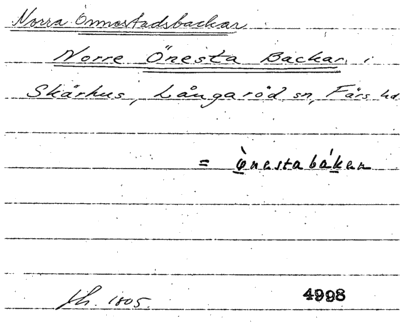 Norra Önnestadsbackar
Norre Önesta Backar i
Skårhus, Långaröd sn, Färs hd
= Ònestabákan
1805. 4998